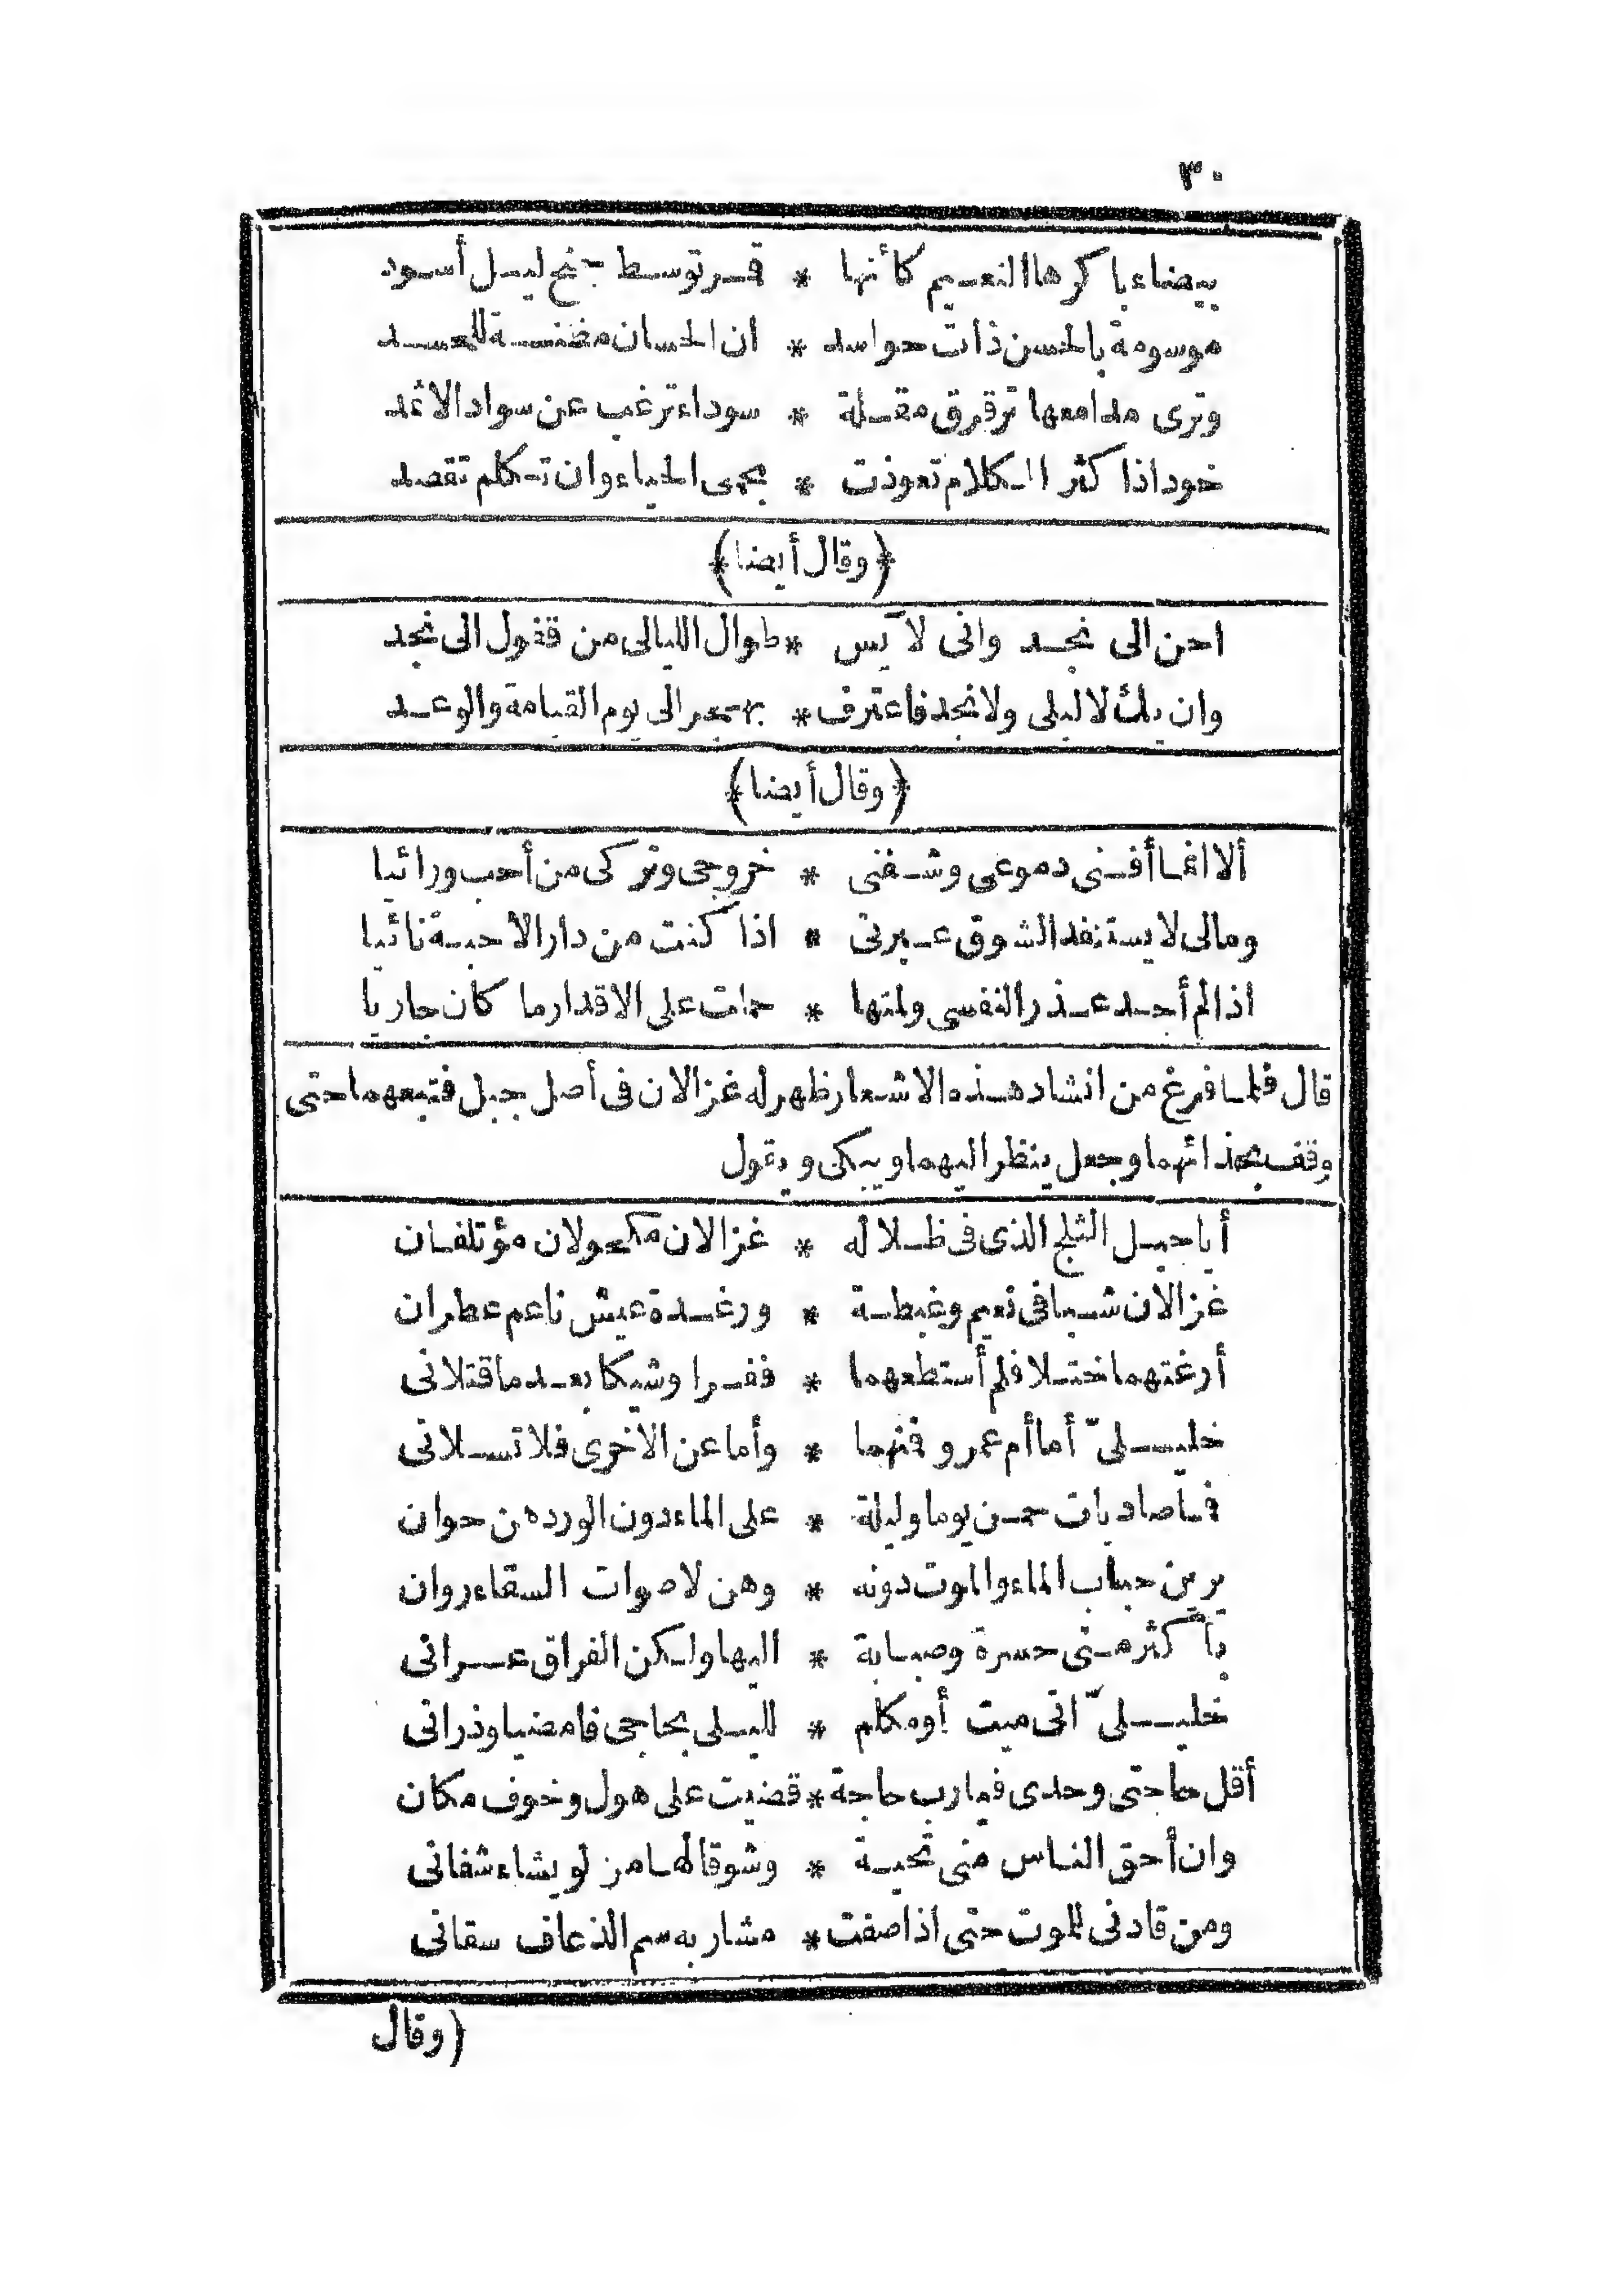 ٣٠
بيضاء باكرها النعيم كأنها * قمر توسط جنح ليل أسود
موسومة بالحسن ذات حواسد * ان الحسان مظنة للحسد
وترى مدامعها ترقرق مقلة * سوداء ترغب عن سواد الاثمد
خود اذا كثر الكلام تعوذت * بحمى الحياء وان تكلم تقصد
﴿وقال أيضا﴾
احن الى نجد وانى لآيس * طوال الليالى من قفول الى نجد
وان يك لا ليلى ولا نجد فاعترف * بهجر الى يوم القيامة والوعد
﴿وقال أيضا﴾
ألا انما أفنى دموعى وشفنى * خروجى وتركى من أحب ورائيا
ومالى لا يستنفد الشوق عبرتى * اذا كنت من دار الأحبة نائيا
اذا لم أجد عذرا لنفسى ولمتها * حملت على الاقدار ما كان جاريا
قال فلما فرغ من انشاد هذه الاشعار ظهر له غزالان فى أصل جبل فتبعهما حتى
وقف بحذائهما وجعل ينظر اليهما ويبكى ويقول
أيا جبل الثلج الذى فى ظلاله * غزالان مكحولان مؤتلفان
غزالان شبا فى نعيم وغبطة * ورغدة عيش ناعم عطران
أرغتهما ختلا فلم أستطعهما * ففرا وشيكا بعد ما قتلانى
خليلىّ أما أم عمرو فمنهما * وأما عن الاخرى فلا تسلانى
فما صاديات حمن يوما وليلة * على الماء دون الورد هن حوان
يرين حباب الماء والموت دونه * وهن لاصوات السقاء روان
بأكثر منى حسرة وصبابة * اليها ولكن الفراق عرانى
خليلىّ انى ميت أو مكلم * لليلى بحاجى فامضيا وذرانى
أقل حاجتى وحدى فيارب حاجة * قضيت على هول وخوف مكان
وان أحق الناس منى تحية * وشوقا لها من لو يشاء شفانى
ومن قادنى للموت حتى اذا صفت * مشاربه سم الذعاف سقانى
(وقال